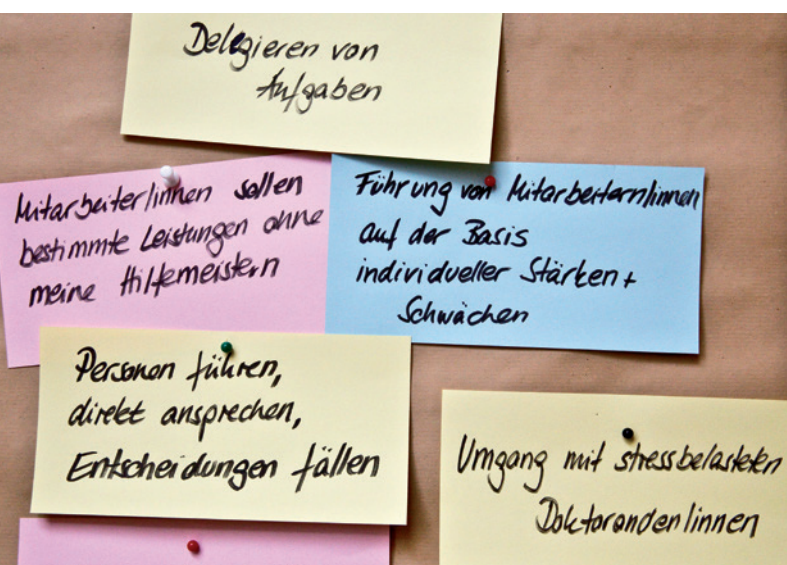 Delegieren von
Aufgaben
Mitarbeiter/innen sollen
bestimmte Leistungen ohne
meine Hilfe meistern
Führung von Mitarbeitern/innen
auf der Basis
individueller Stärken +
Schwächen
Personen führen,
direkt ansprechen,
Entscheidungen fällen
Umgang mit stressbelasteten
Doktoranden/innen